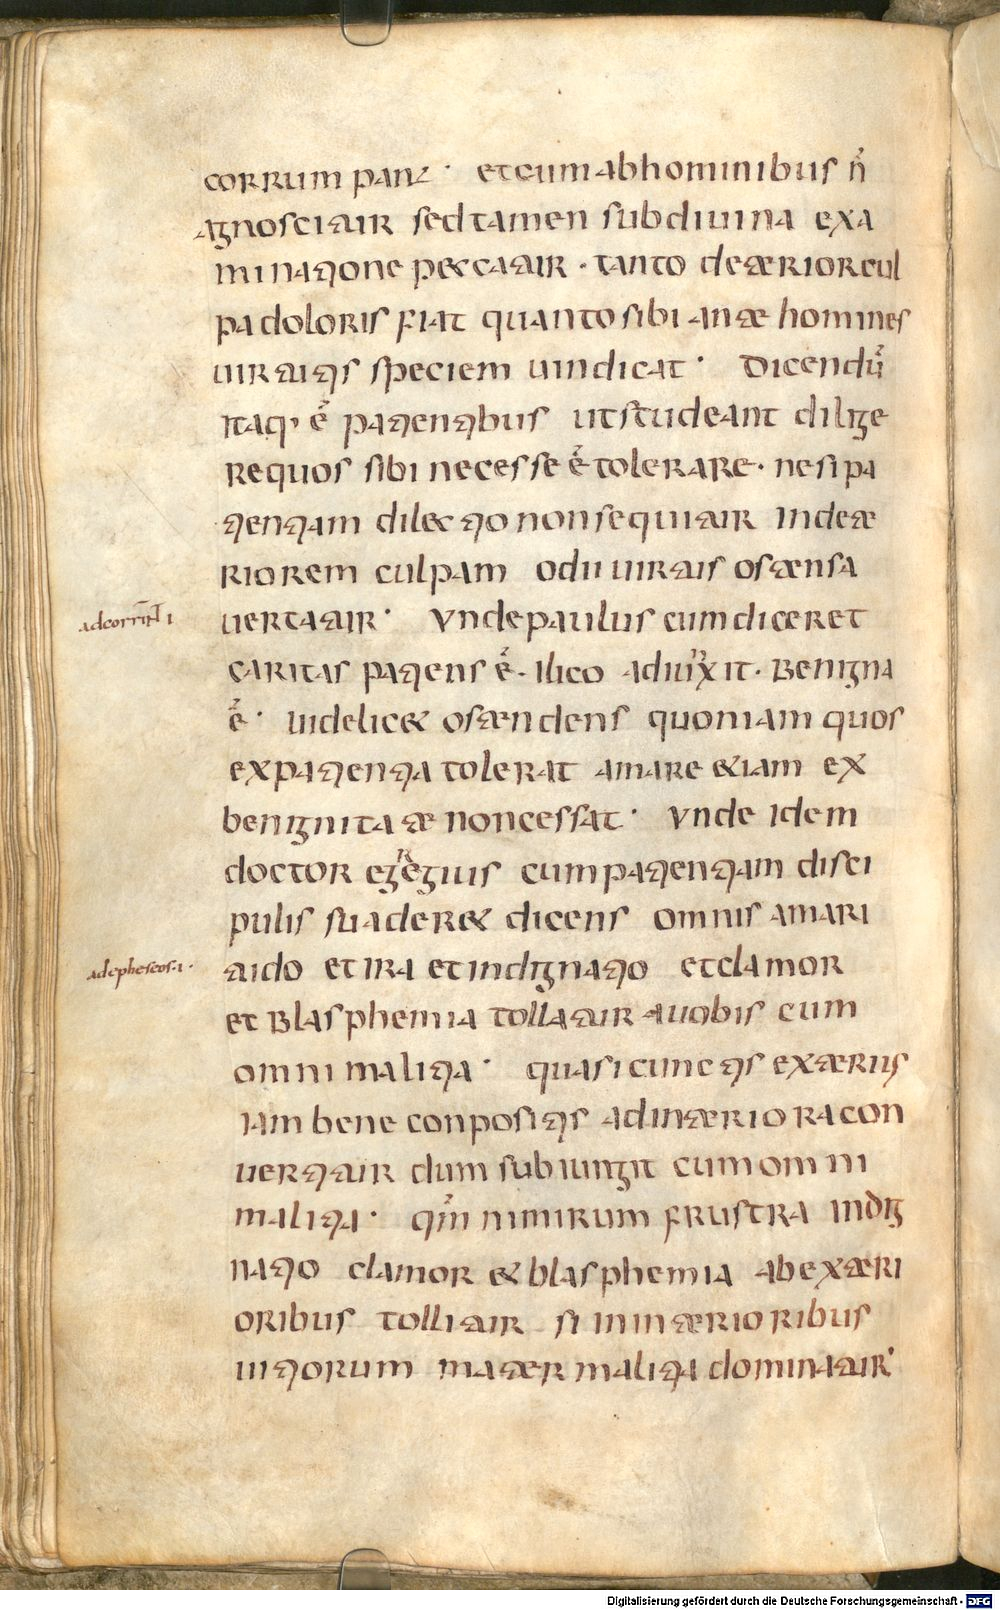 corrumpant · et cum ab hominibus n̄
agnoscitur sed tamen sub divina exa
minatione peccatur · tanto deterior cul
pa doloris fiat quanto sibi ante homines
virtutis speciem vindicat · Dicendū
itaq· ē patientibus ut studeant dilige
re quos sibi necesse ē tolerare · ne si pa
tientiam dilectio non sequitur in dete
riorem culpam odii virtus ostensa
vertatur · Unde paulus cum diceret
caritas patiens ē · Ilico adiunxit · Benigna
ē · videlicet ostendens quoniam quos
ex patientia tolerat amare etiam ex
benignitate non cessat · Unde Idem
ad corrintˉ· I
doctor egregius cum patientiam disci
pulis suaderet dicens omnis amari
tudo et ira et indignatio et clamor
ad epheseos · I ·
et Blasphemia tollatur a vobis cum
omni malitia · quasi cunctis exterius
Iam bene conpositis ad interiora con
vertitur dum subiungit cum omni
malitia · qm̄ nimirum frustra indig
natio clamor et blasphemia ab exteri
oribus tollitur si in interioribus
vitiorum mater malitia dominatur ·
Digitalisierung gefördert durch die Deutsche Forschungsgemeinschaft - DFG